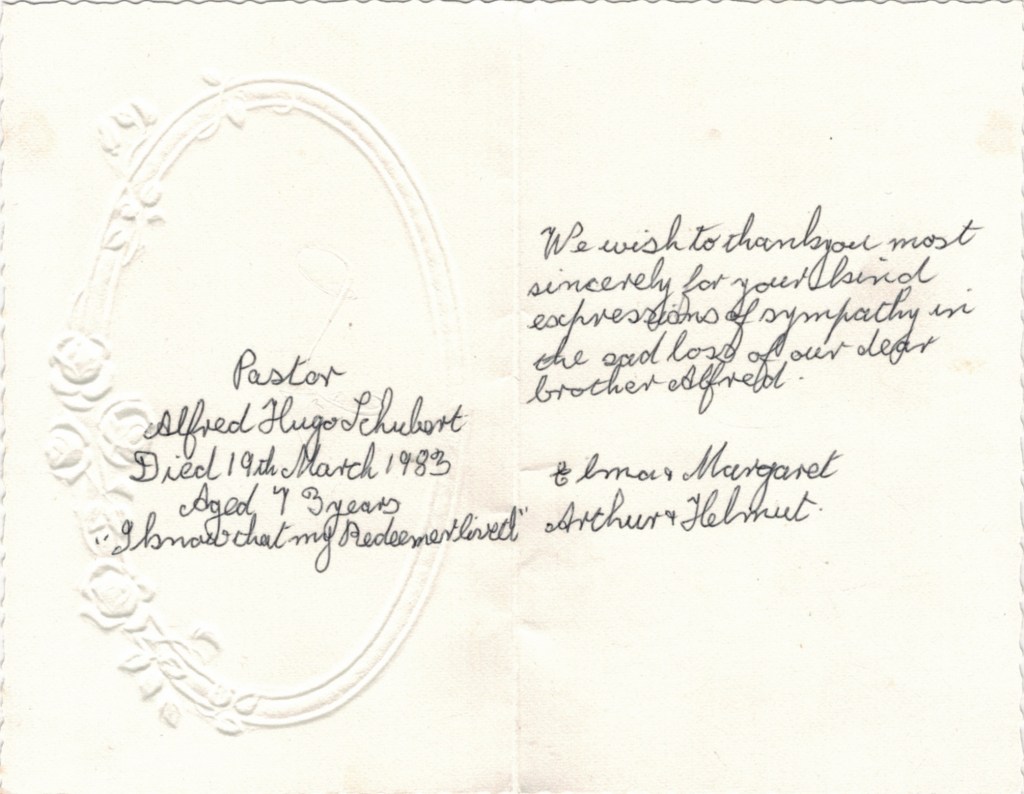 Pastor
Alfred Hugo Schubert
Died 19th March 1983
Aged 73 years
"I know that my Redeemer liveth"
We wish to thank you most
sincerely for your kind
expressions of sympathy in
the sad loss of our dear
brother Alfred.
Elma & Margaret
Arthur & Helmut.